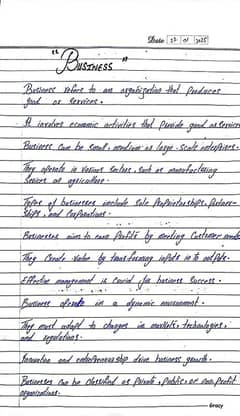 Date 22 01 2025
"BUSINESS"
Business refers to an organization that produces
good or services.
It involves economic activities that provide good or services
Business can be small, medium or large-scale enterprises.
They operate in various sectors, such as manufacturing
services or agriculture.
Types of businesses include sole Proprietorships, Partner-
ships, and Corporations.
Businesses aims to earn Profits by meeting Customer needs
They Create value by transforming inputs in to outputs.
Effective management is crucial for business success.
Business operate in a dynamic environment.
They must adapt to changes in markets, technologies,
and regulations.
Innovation and entrepreneurship drive business growth.
Businesses can be classified as Private, Public, or non Profit
organizations.
Gracy